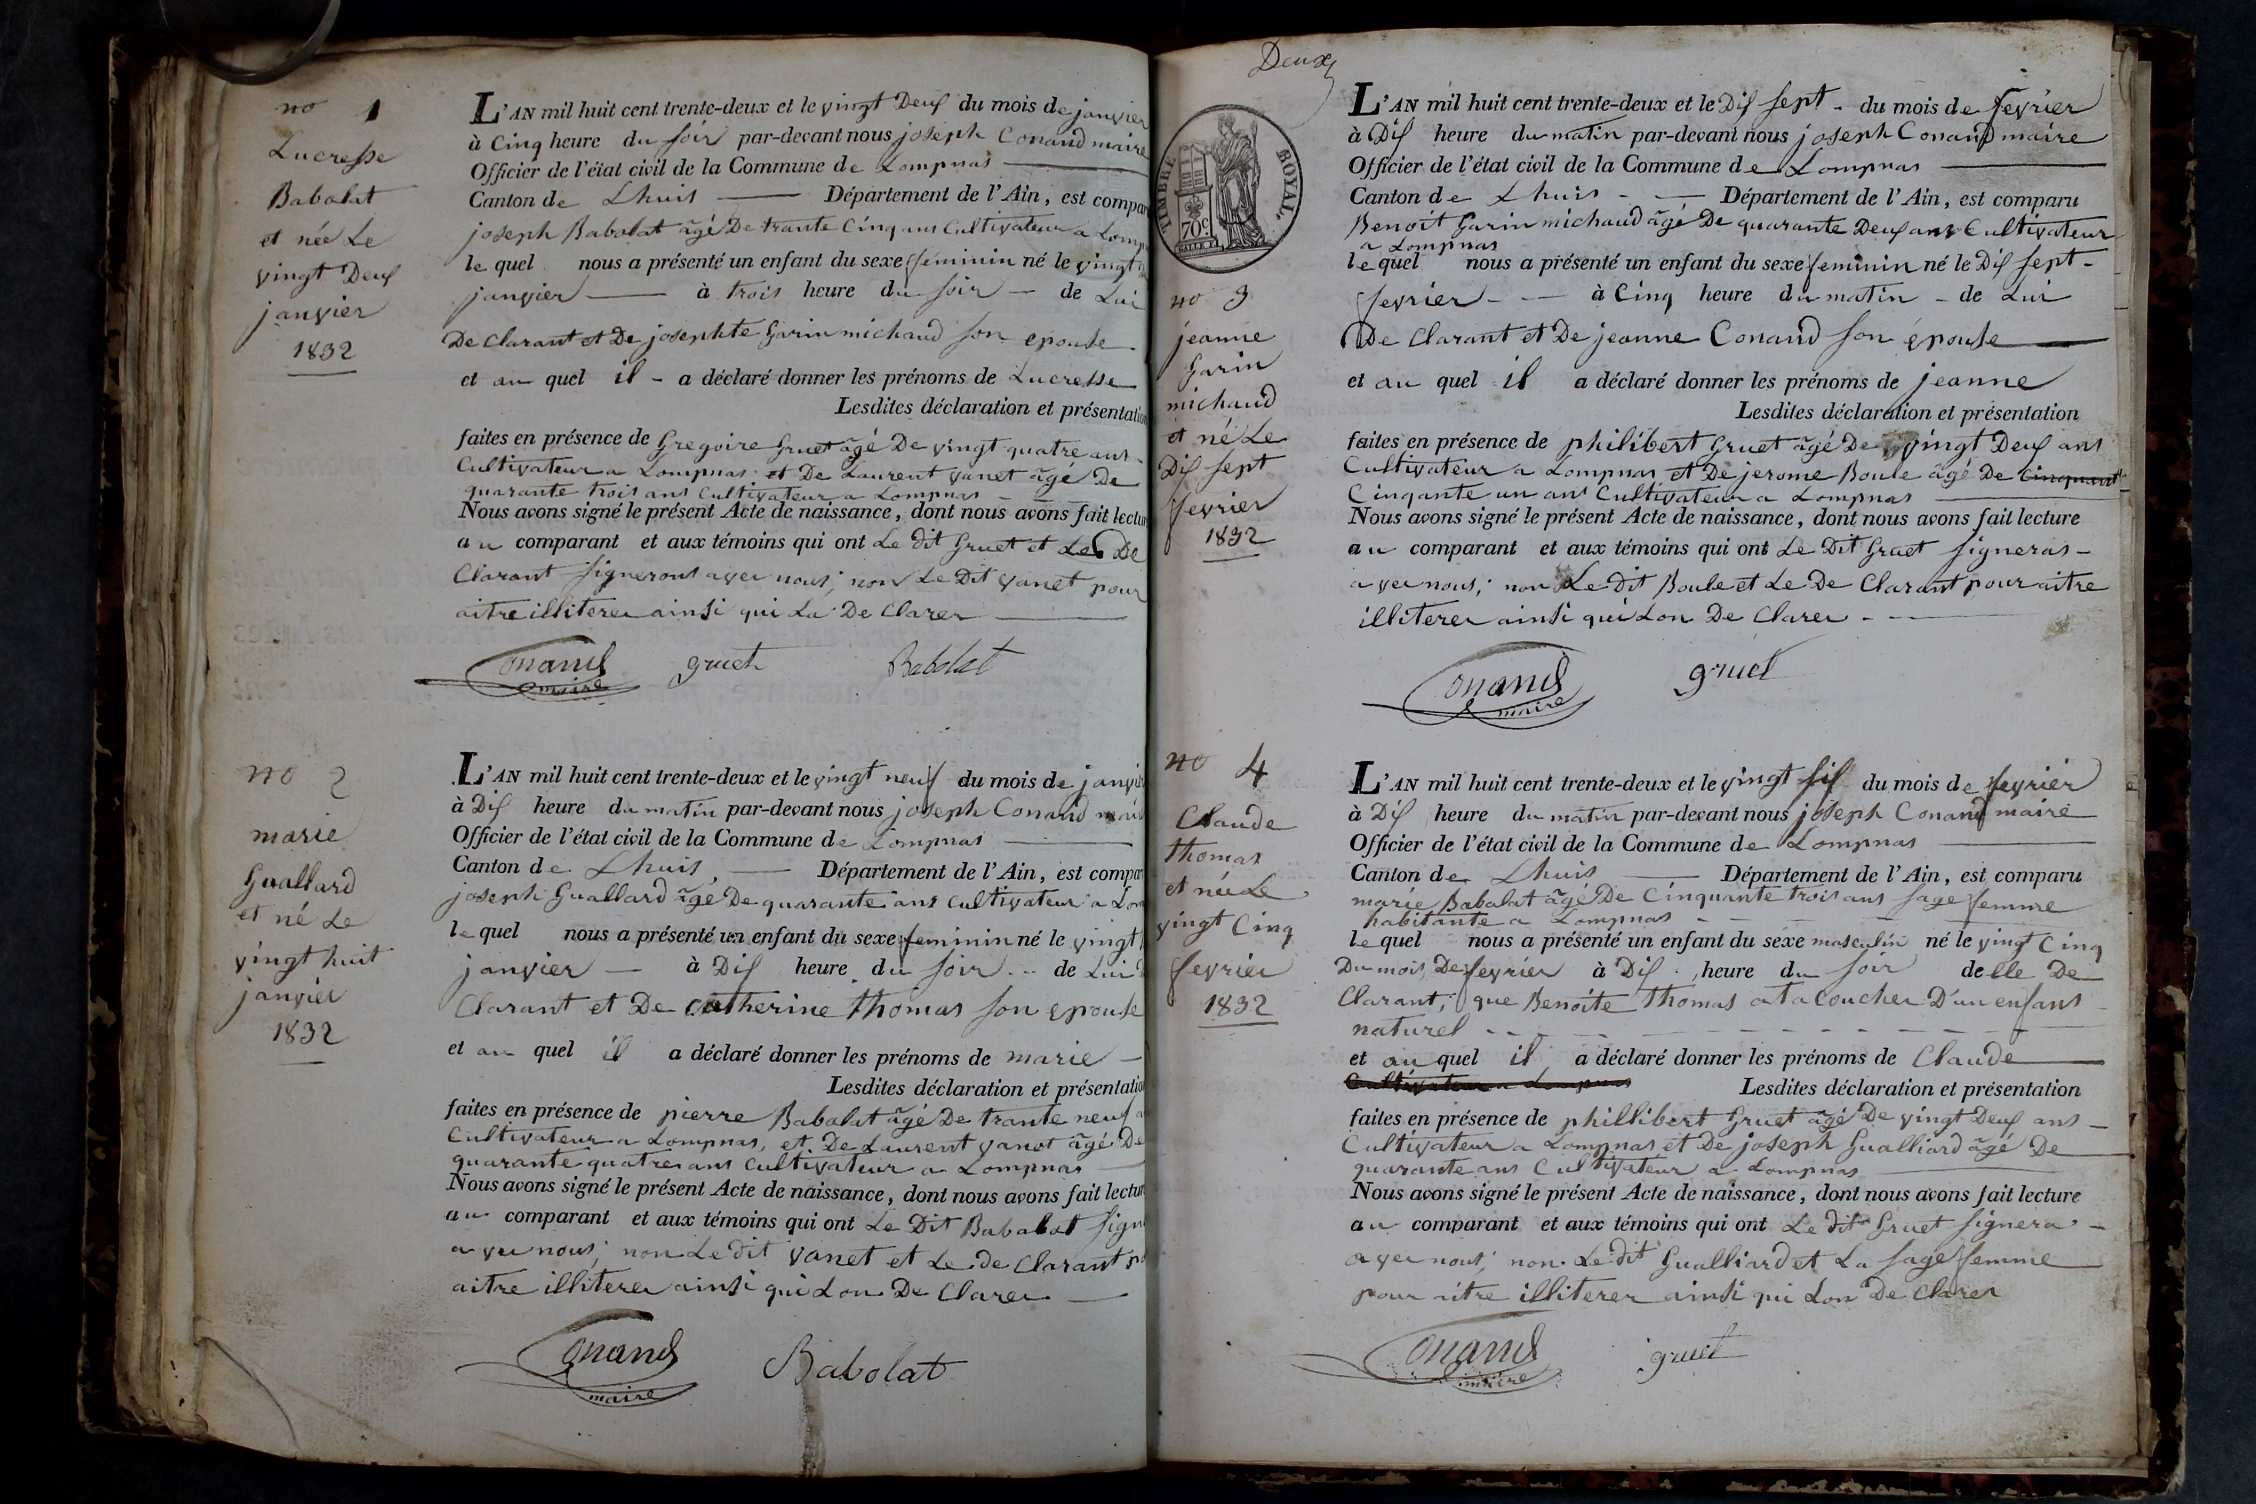 no 1
Lucresse
Babolat
et née Le
vingt Deux
janvier
1832
L'AN mil huit cent trente-deux et le vingt Deux du mois de janvier
à Cinq heure du soir par-devant nous joseph Conand maire
Officier de l'état civil de la Commune de Lompnas
Canton de Lhuis Département de l'Ain, est compar
joseph Babolat âgé De trante Cinq ans Cultivateur a Lomp
le quel nous a présenté un enfant du sexe feminin né le vingt
janvier à trois heure du soir de Lui
De Clarant et De josephte Garin michaud son epouse
et au quel il a déclaré donner les prénoms de Lucresse
Lesdites déclaration et présentation
faites en présence de Gregoire Gruet âgé De vingt quatre ans
Cultivateur a Lompnas et De Laurent vanet âgé De
quarante trois ans Cultivateur a Lompnas
Nous avons signé le présent Acte de naissance, dont nous avons fait lectur
au comparant et aux témoins qui ont Le dit Gruet et Le De
Clarant signerons aver nous; non Le Dit vanet pour
aitre illiterer ainsi qui La De Clarer
Conand maire gruet Babolat
no 2
marie
Guallard
et né Le
vingt huit
janvier
1832
L'AN mil huit cent trente-deux et le vingt neuf du mois de janvi
à Dix heure du matin par-devant nous joseph Conand mai
Officier de l'état civil de la Commune de Lompnas
Canton de Lhuis, Département de l'Ain, est compar
joseph Guallard âgé De quarante ans Cultivateur a Lom
le quel nous a présenté un enfant du sexe feminin né le vingt
janvier à Dix heure du soir de Lui
Clarant et De Catherine thomas son epouse
et au quel il a déclaré donner les prénoms de marie
Lesdites déclaration et présentatio
faites en présence de pierre Babolat âgé De trante neuf
Cultivateur a Lompnas, et De Laurent vanet âgé De
quarante quatre ans Cultivateur a Lompnas
Nous avons signé le présent Acte de naissance, dont nous avons fait lectur
au comparant et aux témoins qui ont Le Dit Babolat sign
aver nous; non Le dit vanet et Le de Clarant
aitre illiterer ainsi qui Lon De Clarer
Conand maire Babolat
Deux
TIMBRE ROYAL.
70c.
no 3
jeanne
Garin
michaud
et né Le
Dix sept
fevrier
1832
L'AN mil huit cent trente-deux et le Dix sept du mois de fevrier
à Dix heure du matin par-devant nous joseph Conand maire
Officier de l'état civil de la Commune de Lompnas
Canton de Lhuis Département de l'Ain, est comparu
Benoit Garin michaud âgé De quarante Deux ans Cultivateur
a Lompnas
le quel nous a présenté un enfant du sexe feminin né le Dix sept
fevrier à Cinq heure du matin de Lui
De Clarant et De jeanne Conand son épouse
et au quel il a déclaré donner les prénoms de jeanne
Lesdites déclaration et présentation
faites en présence de philibert Gruet âgé De vingt Deux ans
Cultivateur a Lompnas et De jerome Boule âgé De Cinquante
Cinqante un ans Cultivateur a Lompnas
Nous avons signé le présent Acte de naissance, dont nous avons fait lecture
au comparant et aux témoins qui ont Le Dit Gruet signeras
aver nous; non Le Dit Boule et Le De Clarant pour aitre
illiterer ainsi qui Lon De Clarer
Conand maire gruet
no 4
Claude
thomas
et née Le
vingt Cinq
fevrier
1832
L'AN mil huit cent trente-deux et le vingt six du mois de fevrier
à Dix heure du matin par-devant nous joseph Conand maire
Officier de l'état civil de la Commune de Lompnas
Canton de Lhuis Département de l'Ain, est comparu
marie Babolat âgé De Cinquante trois ans sage femme
habitante a Lompnas
le quel nous a présenté un enfant du sexe masculin né le vingt Cinq
Du mois De fevrier à Dix heure du soir de lle De
Clarant, que Benoite thomas at a Coucher D'un enfans
naturel
et au quel il a déclaré donner les prénoms de Claude
Cultivateur a Lompnas Lesdites déclaration et présentation
faites en présence de phillibert Gruet âgé De vingt Deux ans
Cultivateur a Lompnas et De joseph Gualliard âgé De
quarante ans Cultivateur a Lompnas
Nous avons signé le présent Acte de naissance, dont nous avons fait lecture
au comparant et aux témoins qui ont Le dit Gruet signera
aver nous; non Le dit Gualliard et La sage femme
pour aitre illiterer ainsi qui Lon De Clarer
Conand maire gruet